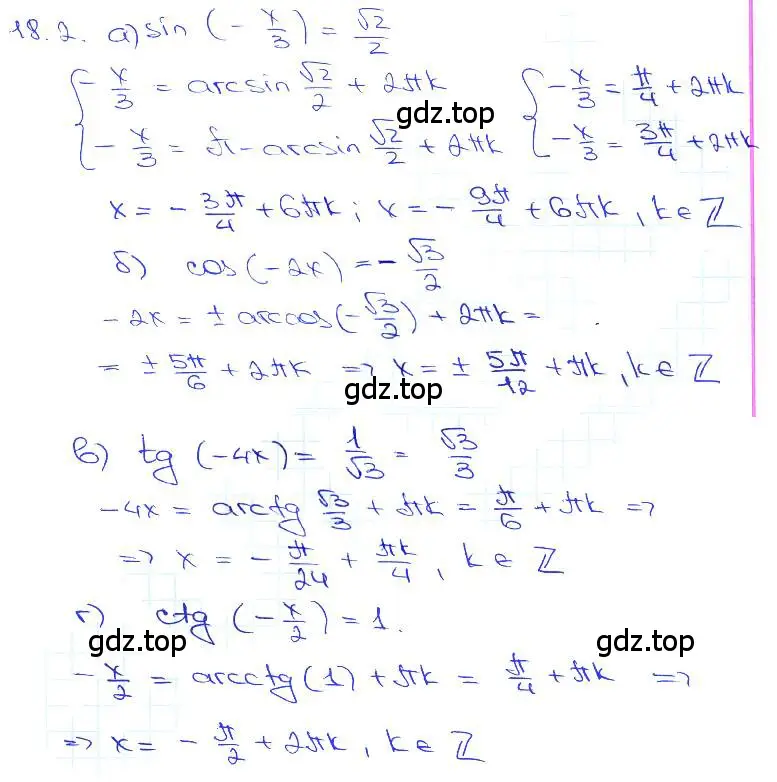 18.2. а) sin (-x/3) = √2/2
{ -x/3 = arcsin √2/2 + 2πk { -x/3 = π/4 + 2πk
gdz.top
-x/3 = π - arcsin √2/2 + 2πk -x/3 = 3π/4 + 2πk
x = - 3π/4 + 6πk; x = - 9π/4 + 6πk, k ∈ ℤ
б) cos (-2x) = - √3/2
-2x = ± arccos (-√3/2) + 2πk =
= ± 5π/6 + 2πk => x = ± 5π/12 + πk, k ∈ ℤ
gdz.top
в) tg (-4x) = 1/√3 = √3/3
-4x = arctg √3/3 + πk = π/6 + πk =>
=> x = - π/24 + πk/4, k ∈ ℤ
г) ctg (-x/2) = 1.
gdz.top gdz.top
-x/2 = arcctg (1) + πk = π/4 + πk =>
=> x = - π/2 + 2πk, k ∈ ℤ